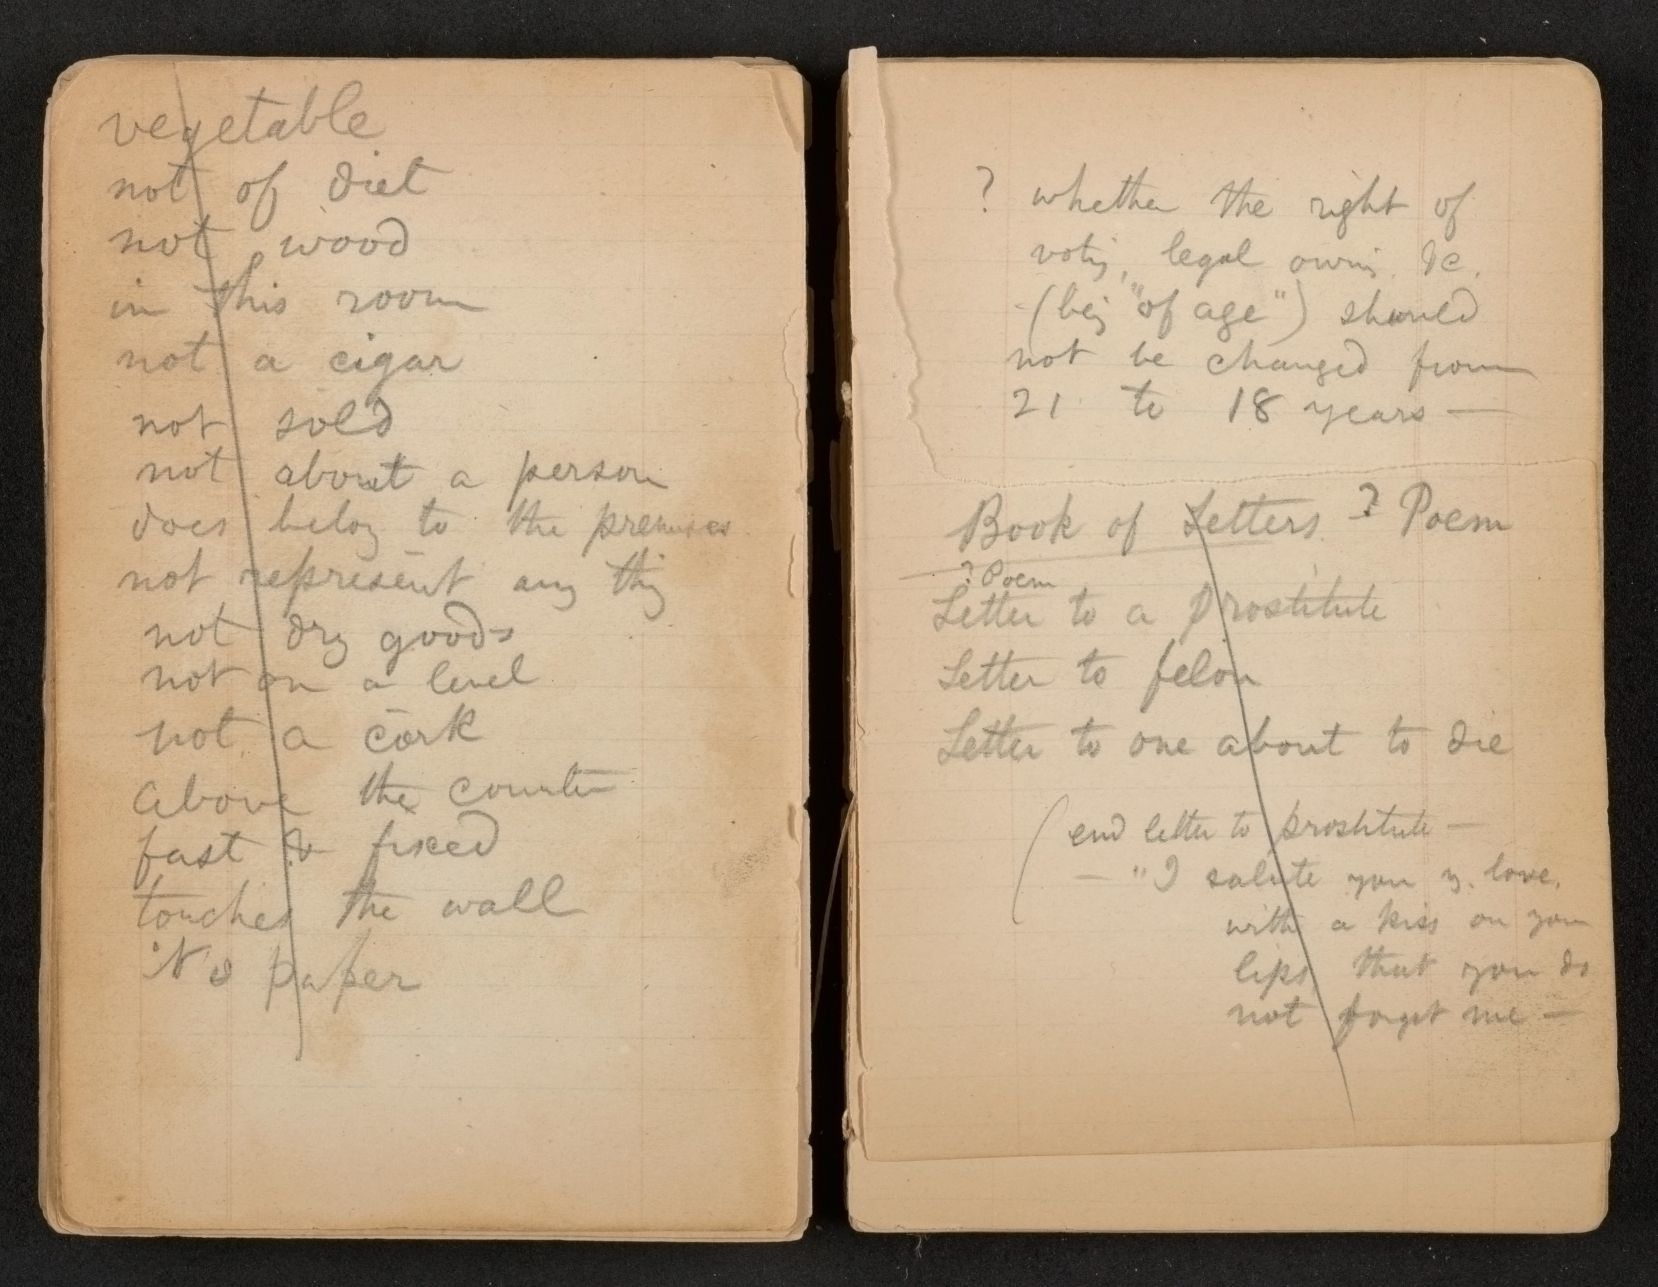 vegetable
not of diet
not wood
in this room
not a cigar
not sold
not about a person
does belog to the premises
not represent any thig
not dry goods
not on a level
not a cork
above the counter
fast & fixed
touches the wall
it is paper
? whether the right of
votig, legal ownig &c.
(beig "of age") should
not be changed from
21 to 18 years —
Book of Letters ? Poem
? Poem
Letter to a prostitute
Letter to felon
Letter to one about to die
(end letter to prostitute —
— "I salute you my love,
with a kiss on your
lips that you do
not forget me —